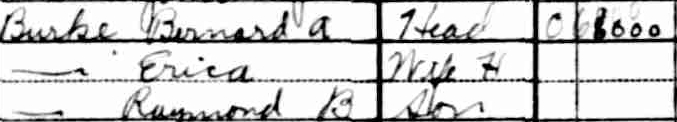 Burke Bernard A Head O 6 8000
— Erica Wife H
— Raymond B Son